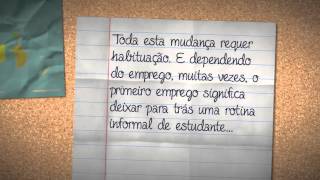 Toda esta mudança requer
habituação. E dependendo
do emprego, muitas vezes, o
primeiro emprego significa
deixar para trás uma rotina
informal de estudante...